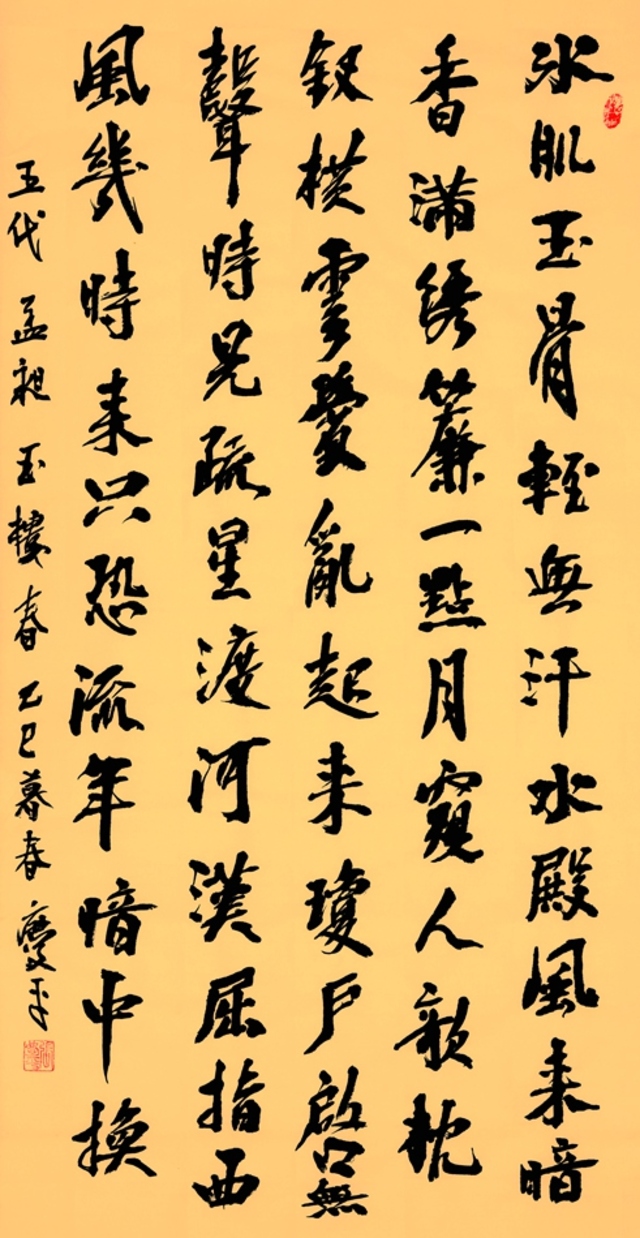 冰肌玉骨輕無汗水殿風来暗
香滿绣簾一點月窺人欹枕
釵横雲鬢亂起来瓊户啟無
聲時見疏星渡河漢屈指西
風幾時来只恐流年暗中換
五代 孟昶 玉樓春 乙巳暮春 慶平